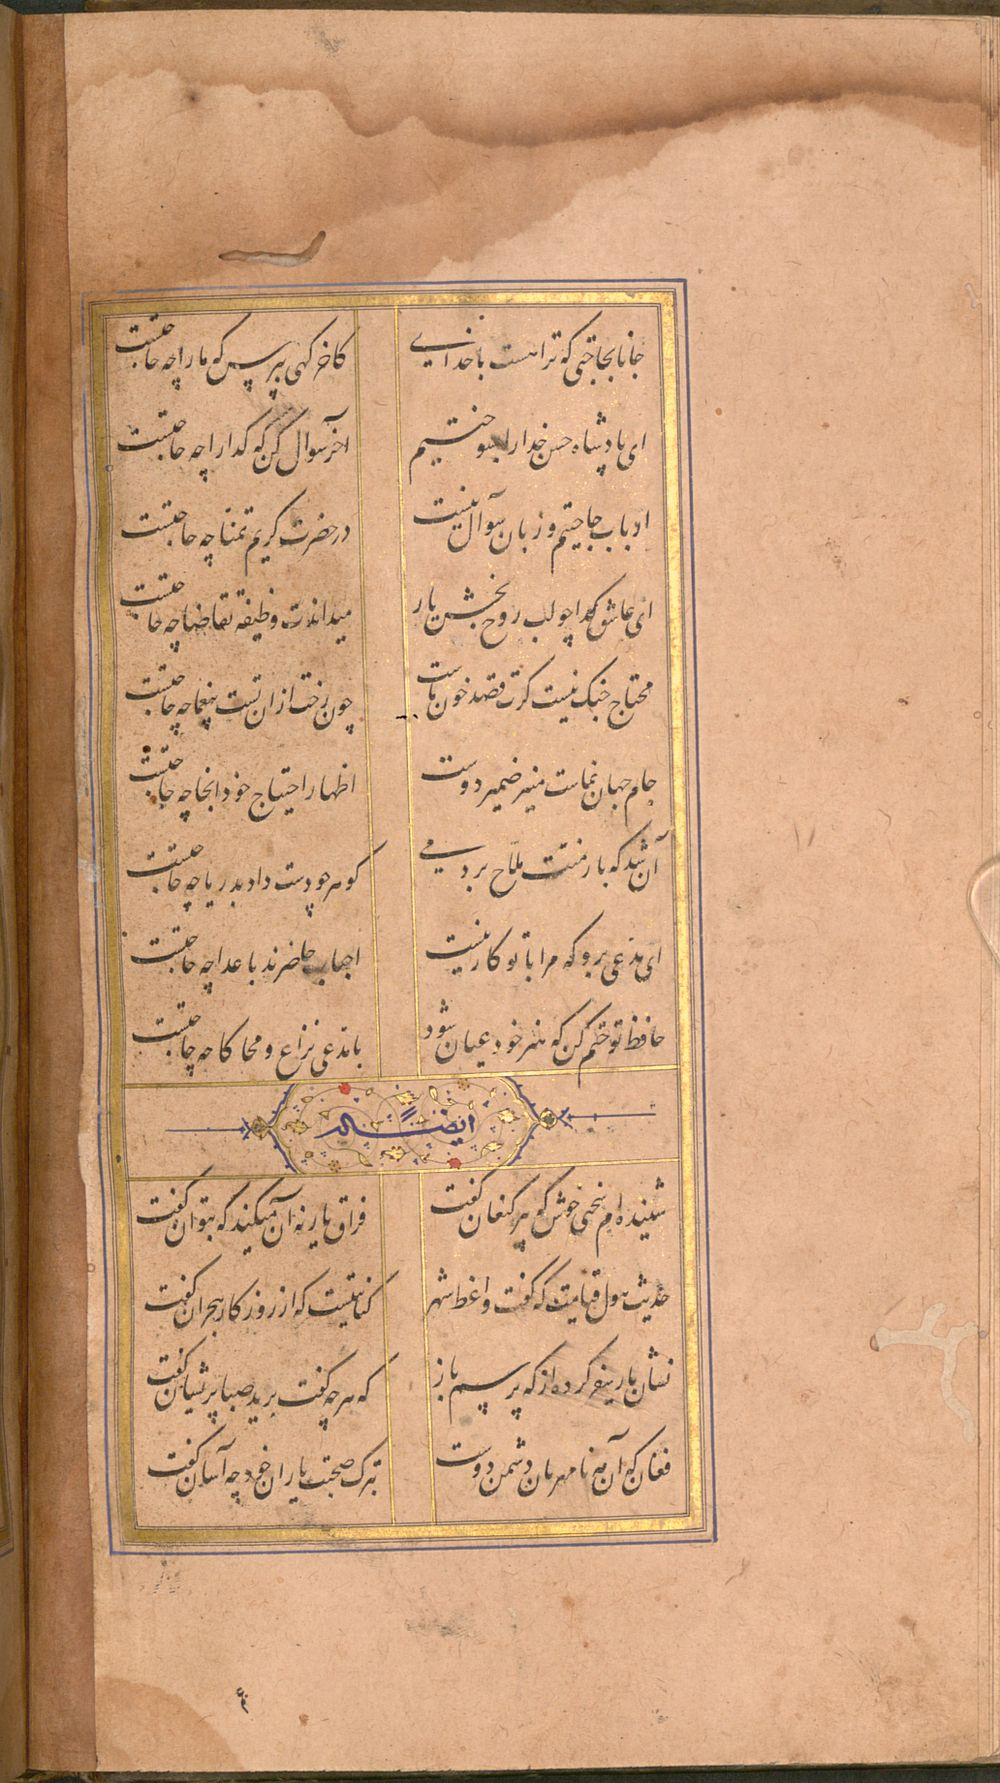 جانا بحاجتی که ترا هست با خدایی
کاخر کهی بپرس که ما را چه حاجتست
ای پادشاه حسن خدا را بسوختیم
آخر سوال کن که کدا را چه حاجتست
ارباب حاجتیم و زبان سوآل نیست
در حضرت کریم تمنا چه حاجتست
ای عاشق کدا چو لب روح بخش یار
میداندت وظیفه تقاضا چه حاجتست
محتاج جنک نیست کرت قصد خون ماست
چون رخت ازان تست بیغما چه حاجتست
جام جهان نماست منیر ضمیر دوست
اظهار احتیاج خود انجا چه حاجتست
آن شد که بار منت ملاح بردمی
کوهر چو دست داد بدریا چه حاجتست
ای مدعی برو که مرا با تو کار نیست
احباب حاضرند باعدا چه حاجتست
حافظ تو ختم کن که هنر خود عیان شود
با مدعی نزاع و محاکا چه حاجتست
ایضاً له
شنیده ام سخنی خوش که پیر کنعان کفت
فراق یار نه آن میکند که بتوان کفت
حدیث هول قیامت که کفت واعظ شهر
کنایتیست که از روزکار هجران کفت
نشان یار سفر کرده از که پرسم باز
که هر چه کفت برید صبا پریشان کفت
فغان که آن مه نامهربان دشمن دوست
بترک صحبت یاران خود چه آسان کفت